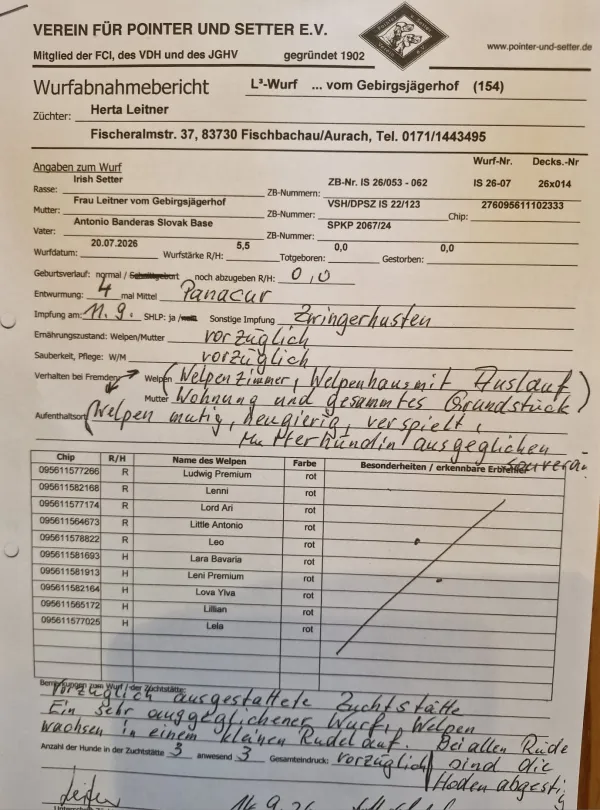 VEREIN FÜR POINTER UND SETTER E.V.
Mitglied der FCI, des VDH und des JGHV gegründet 1902 www.pointer-und-setter.de
Wurfabnahmebericht L³-Wurf ... vom Gebirgsjägerhof (154)
Züchter: Herta Leitner
Fischeralmstr. 37, 83730 Fischbachau/Aurach, Tel. 0171/1443495
Angaben zum Wurf Wurf-Nr. Decks.-Nr
Rasse: Irish Setter ZB-Nummern: ZB-Nr. IS 26/053 - 062 IS 26-07 26x014
Mutter: Frau Leitner vom Gebirgsjägerhof ZB-Nummer: VSH/DPSZ IS 22/123 Chip: 276095611102333
Vater: Antonio Banderas Slovak Base ZB-Nummer: SPKP 2067/24
Wurfdatum: 20.07.2026 Wurfstärke R/H: 5,5 Totgeboren: 0,0 Gestorben: 0,0
Geburtsverlauf: normal / Schnittgeburt noch abzugeben R/H: 0,0
Entwurmung: 4 mal Mittel Panacur
Impfung am: 11.9. SHLP: ja / nein Sonstige Impfung Zwingerhusten
Ernährungszustand: Welpen/Mutter vorzüglich
Sauberkeit, Pflege: W/M vorzüglich
Verhalten bei Fremden Welpen (Welpenzimmer, Welpenhaus mit Auslauf)
Mutter Wohnung und gesammtes Grundstück
Aufenthaltsort (Welpen mutig, neugierig, verspielt,
Mutterhündin ausgeglichen
souverän
Chip R/H Name des Welpen Farbe Besonderheiten / erkennbare Erbfehler
095611577266 R Ludwig Premium rot
095611582168 R Lenni rot
095611577174 R Lord Ari rot
095611564673 R Little Antonio rot
095611578822 R Leo rot
095611581693 H Lara Bavaria rot
095611581913 H Leni Premium rot
095611582164 H Lova Ylva rot
095611565172 H Lillian rot
095611577025 H Lela rot
Bemerkungen zum Wurf / der Zuchtstätte:
Vorzüglich ausgestattete Zuchtstätte
Ein sehr ausgeglichener Wurf, Welpen
wachsen in einem kleinen Rudel auf. Bei allen Rüde
Anzahl der Hunde in der Zuchtstätte 3 anwesend 3 Gesamteindruck: vorzüglich sind die
Hoden abgesti